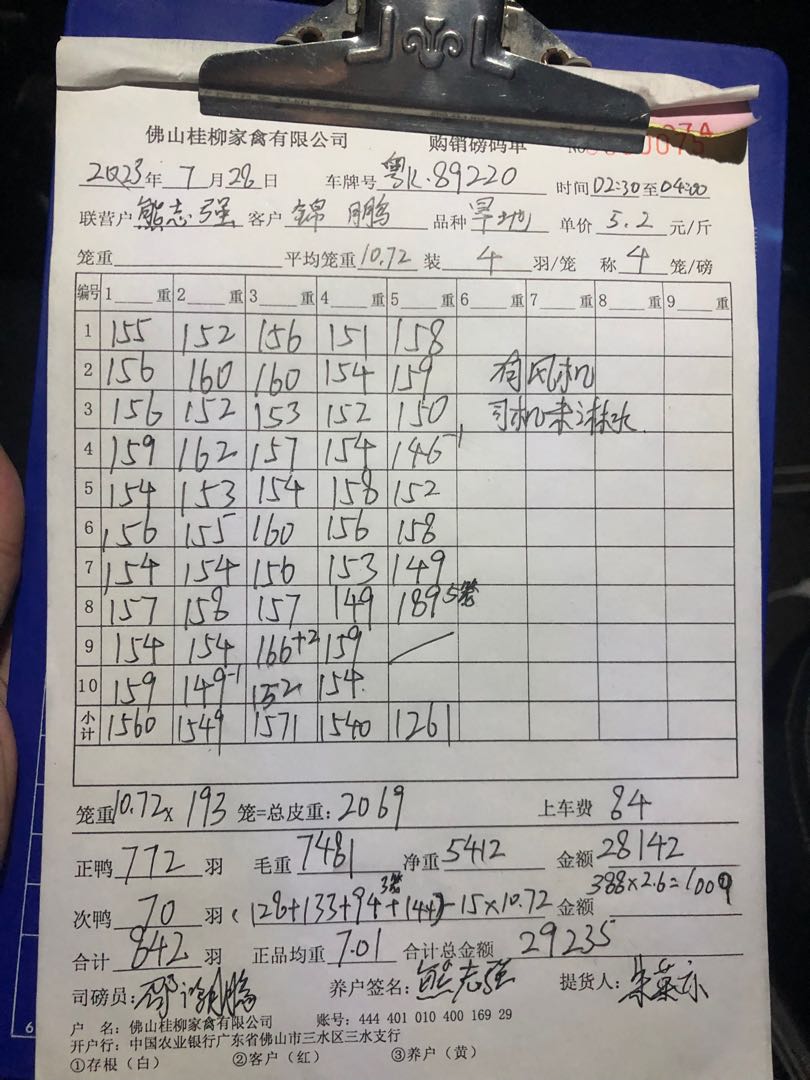 佛山桂柳家禽有限公司 购销磅码单
2023年7月28日 车牌号 粤K.89220 时间02:30至04:00
联营户 熊志强 客户 锦鹏 品种 旱地 单价 5.2 元/斤
笼重 平均笼重10.72 装 4 羽/笼 称 4 笼/磅
编号 1 重 2 重 3 重 4 重 5 重 6 重 7 重 8 重 9 重
1 155 152 156 151 158
2 156 160 160 154 159 有风机
3 156 152 153 152 150 司机来淋水
4 159 162 157 154 146-1
5 154 153 154 158 152
6 156 155 160 156 158
7 154 154 156 153 149
8 157 158 157 149 189 5笼
9 154 154 166+2 159
10 159 149-1 152 154
小计 1560 1549 1571 1540 1261
笼重10.72× 193 笼=总皮重:2069 上车费 84
正鸭 772 羽 毛重 7481 净重 5412 金额 28142
次鸭 70 羽 (128+133+94 3笼+144)-15×10.72 金额 388×2.6=1009
合计 842 羽 正品均重 7.01 合计总金额 29235
司磅员: 养户签名: 熊志强 提货人:
户 名:佛山桂柳家禽有限公司 账号:444 401 010 400 169 29
开户行:中国农业银行广东省佛山市三水区三水支行
①存根(白) ②客户(红) ③养户(黄)
6